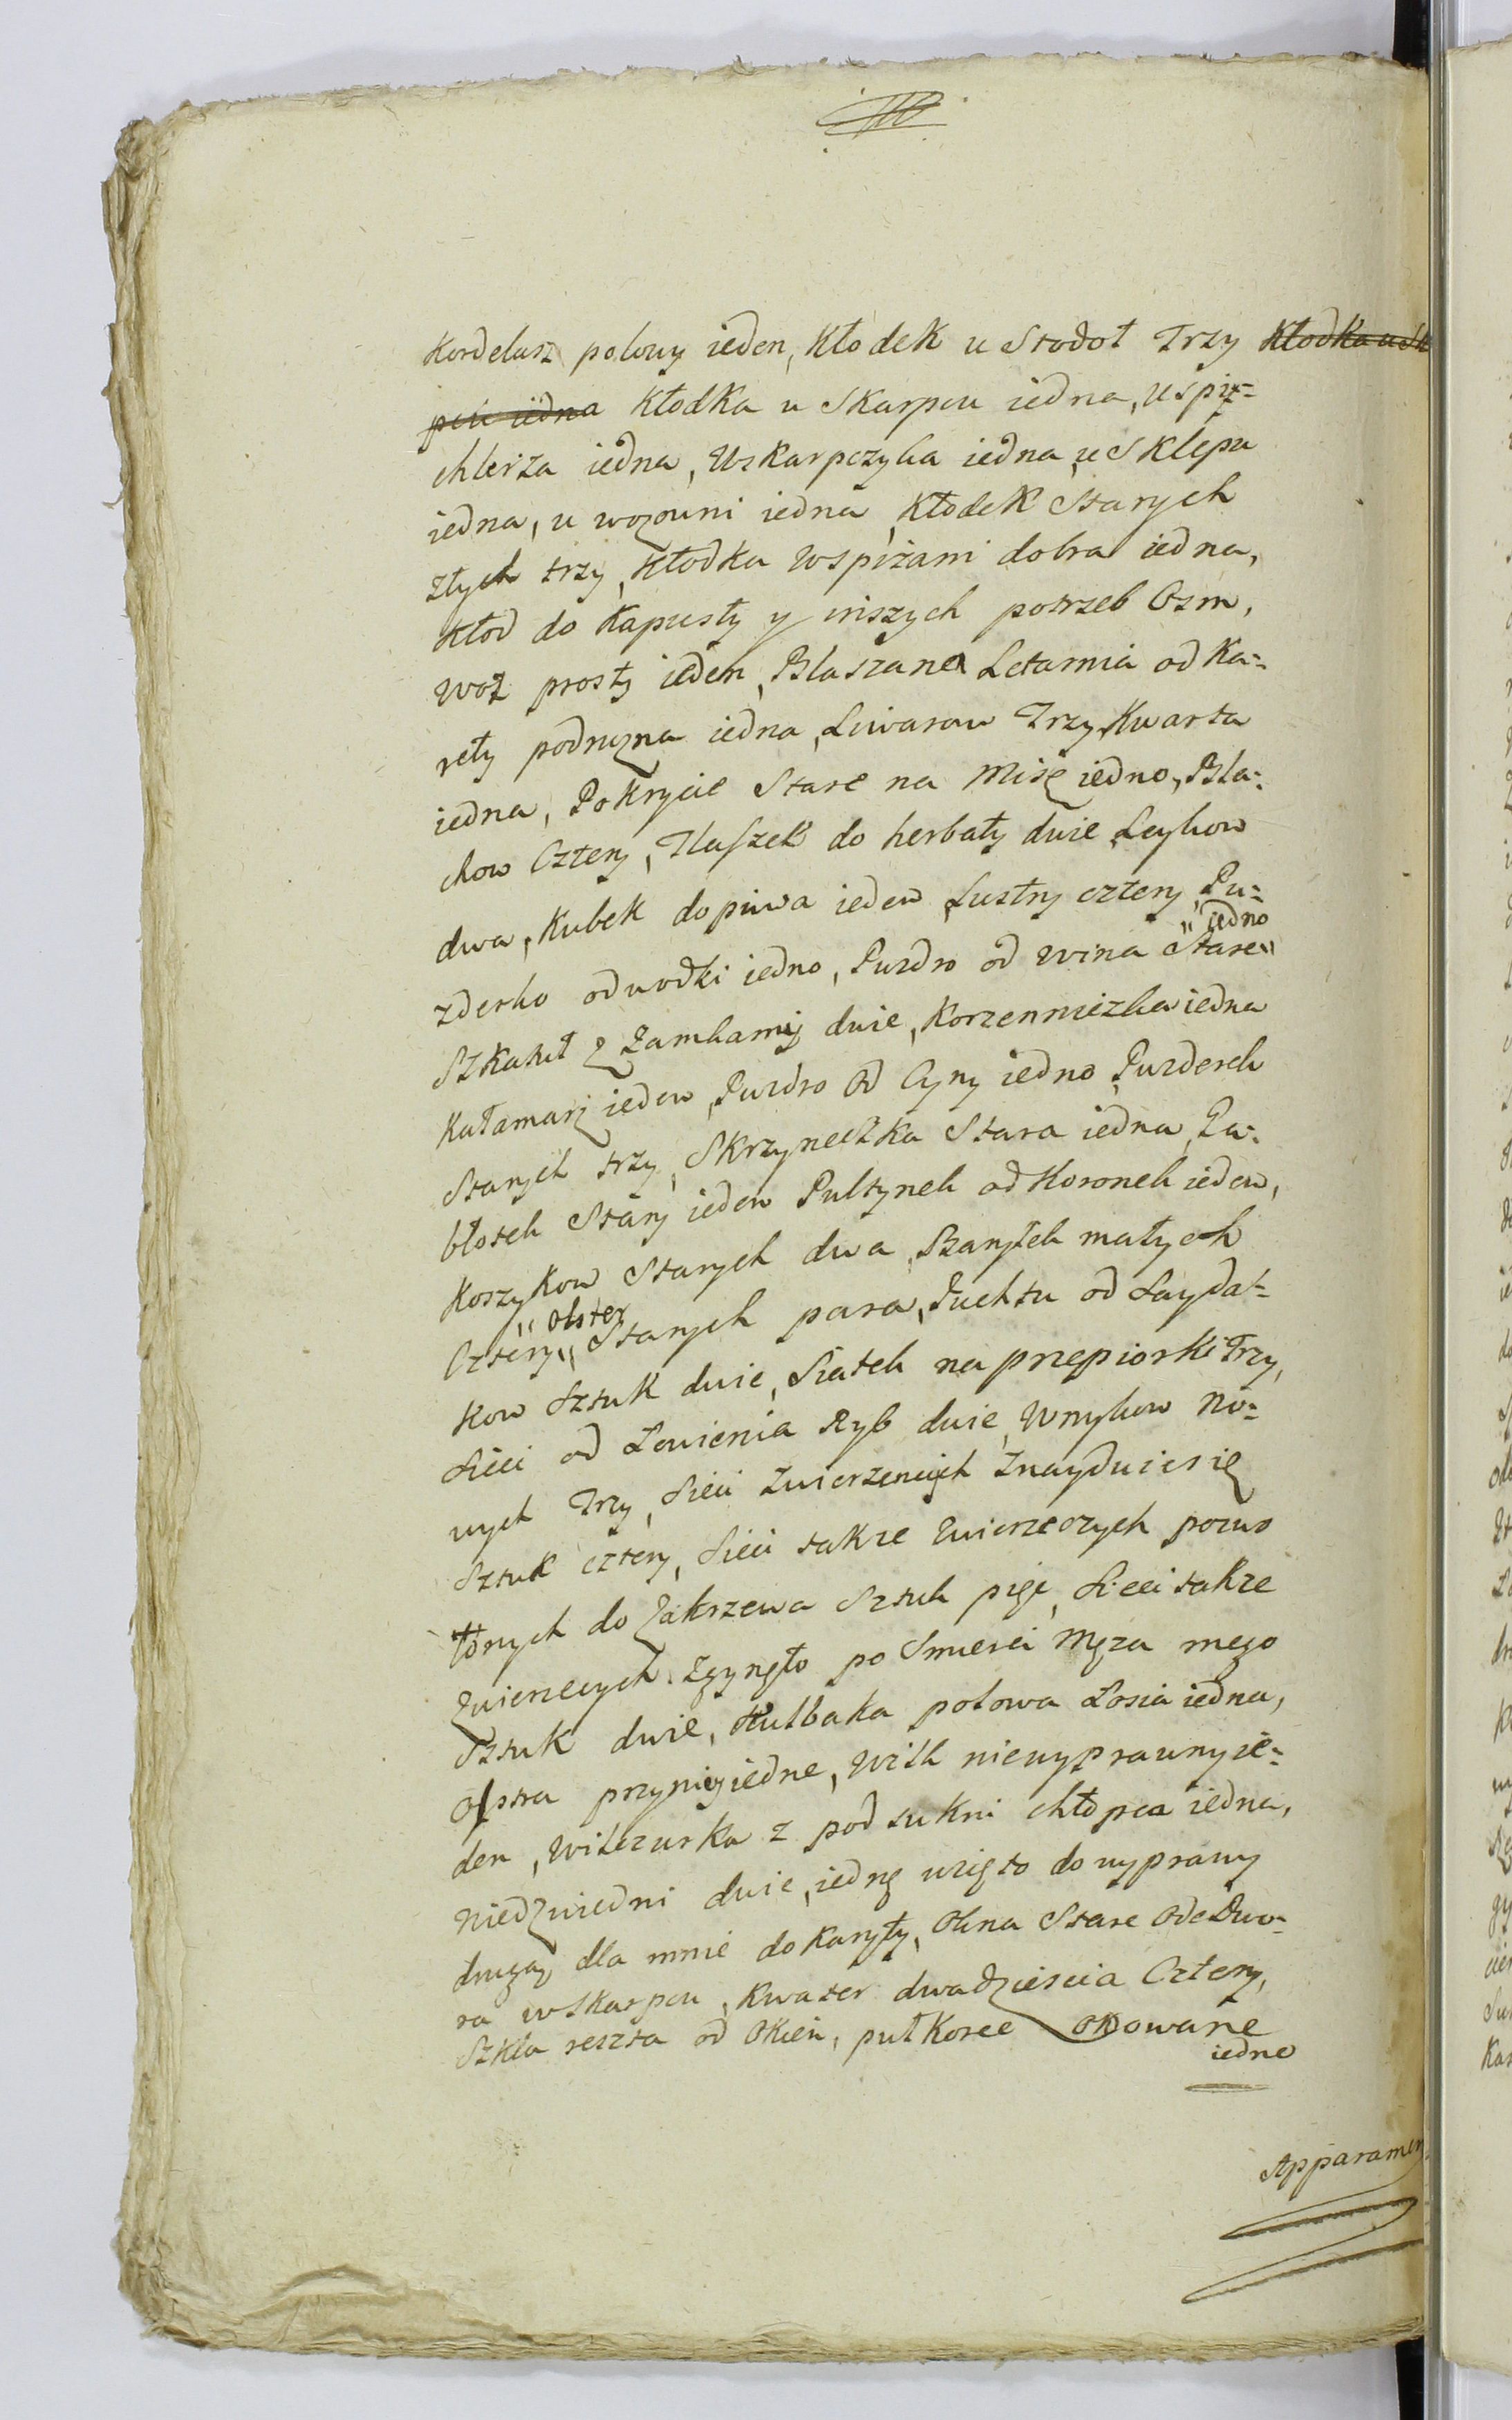 Kordelasz polowy ieden, Kłodek u Stodoł Trzy Kłodka u Sk
pcu iedna Kłodka u Skarpcu iedna, u spi-
chlerza iedna, Uskarpczyka iedna, u Sklepu
iedna, u wozowni iedna, Kłodek Starych
złych trzy, Kłodka Wspiżarni dobra iedna,
Kłod do Kapusty y inszych potrzeb Osm,
Woz prosty ieden, Blaszana Letarnia od Ka-
rety podrużna iedna, Liwarow Trzy, Kwarta
iedna, Pokrycie Stare na Misę iedno, Bla-
chow Cztery, Flaszek do herbaty dwie, Leykow
dwa, Kubek do piwa ieden, Lustry cztery, Pu-
zderko od wodki iedno, Puzdro od Wina Stare "iedno"
Szkatuł z Zamkamy dwie, Korzenniczka iedna
Kałamarz ieden, Puzdro od Cyny iedno, Puzderek
Starych trzy, Skrzyneczka Stara iedna, Za-
błotek Stary ieden Pultynek od Koronek ieden,
Koszykow Starych dwa, Baryłek małych
Cztery, "Olster" Starych para, Puchtu od Laydat-
kow Sztuk dwie, Siatek na przepiorki Trzy,
Sieci od Łowienia Ryb dwie, Wnykow No-
wych Trzy, Sieci Zwierzencych Znayduie się
Sztuk cztery, Sieci takze Zwierzeczych pozwo
łonych do Zakrzewa Sztuk pięc, Sieci takze
Zwierzecych Zgynęło po Smierci Męza mego
Sztuk dwie, Kulbaka polowa Łosia iedna,
Olstra przyniey iedne, Wilk niewyprawny ie-
den, Wilczurka z pod sukni chłopca iedna,
Niedzwiedni dwie, iednę wzięto do wyprawy
drugą dla mnie do Karyty, Okna Stare Ode Dwo-
ra w Skarpcu, Kwater dwadziescia Cztery,
Szkła reszta od Okien, pułKorce Okowane
iedno
Apparamen